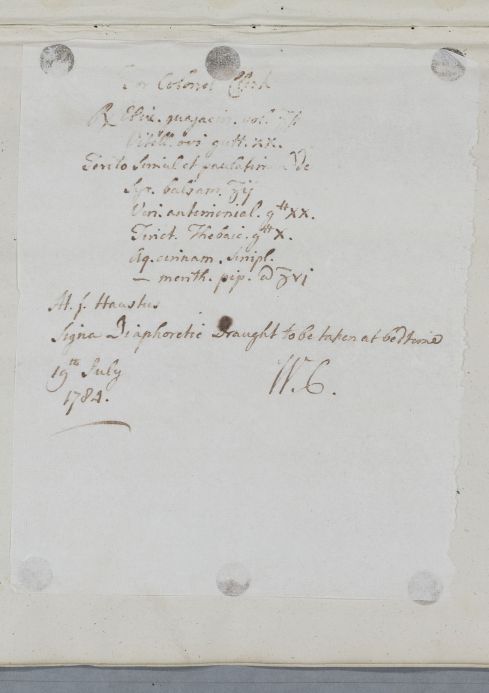 For Colonel Clerk
℞ Elix. guajacin. vol. ʒj
Vitelli ovi gutt. xx.
Terito simul et paulatim adde
Syr. balsam. ʒij
Vini antimonial. gtt xx.
Tinct. Thebaic. gtt X.
Aq. cinnam. simpl.
— menth. pip. a ʒvi
M. f. Haustus
Signa Diaphoretic Draught to be taken at bedtime
19th July W. C.
1784.